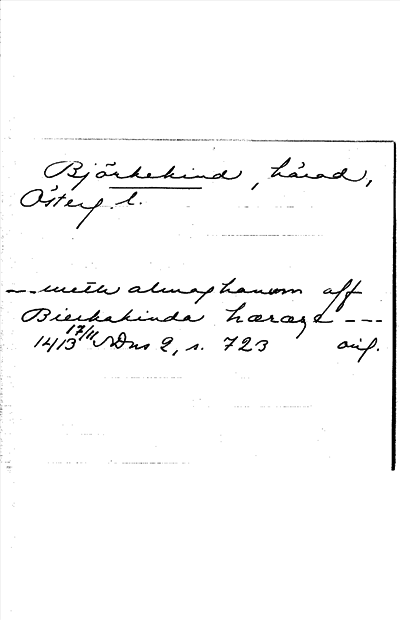 Björkekind, härad,
Österg. l.
--- meth almoghanom aff
Bierkakinda hæræẜ ---
1413 17/11 SDns 2, s. 723 orig.